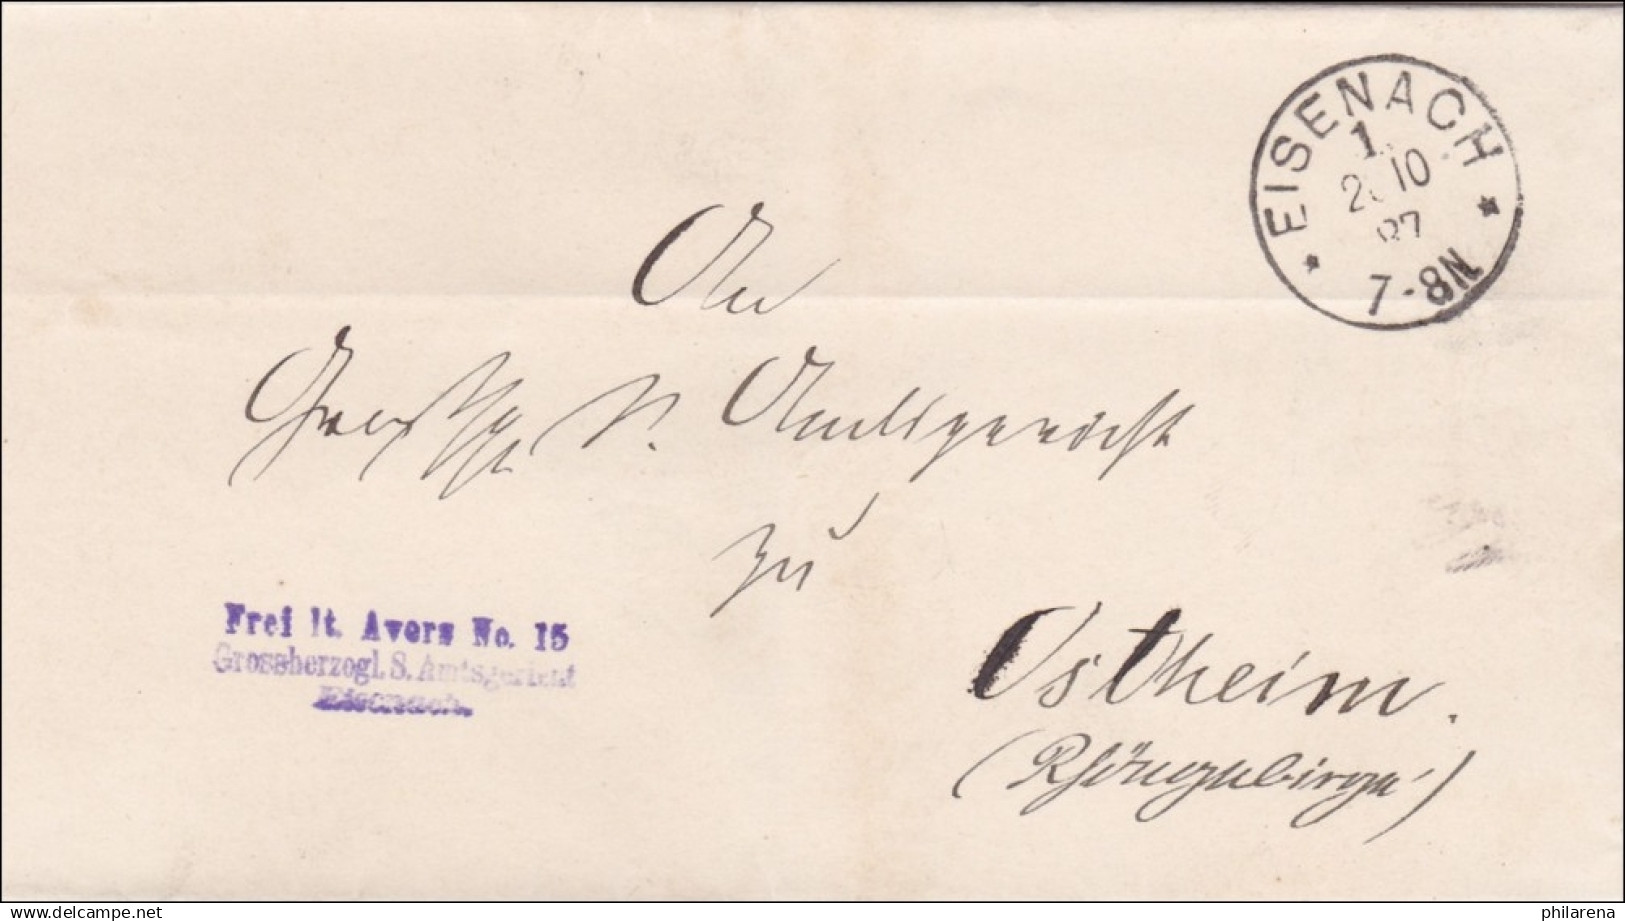 EISENACH
1
2 10
87
7-8N
An
Grossh. S. Amtsgericht
zu
Ostheim.
(Rhöngebirge)
Frei lt. Avers No. 15
Grossherzogl. S. Amtsgericht
Eisenach.
www.delcampe.net
philarena